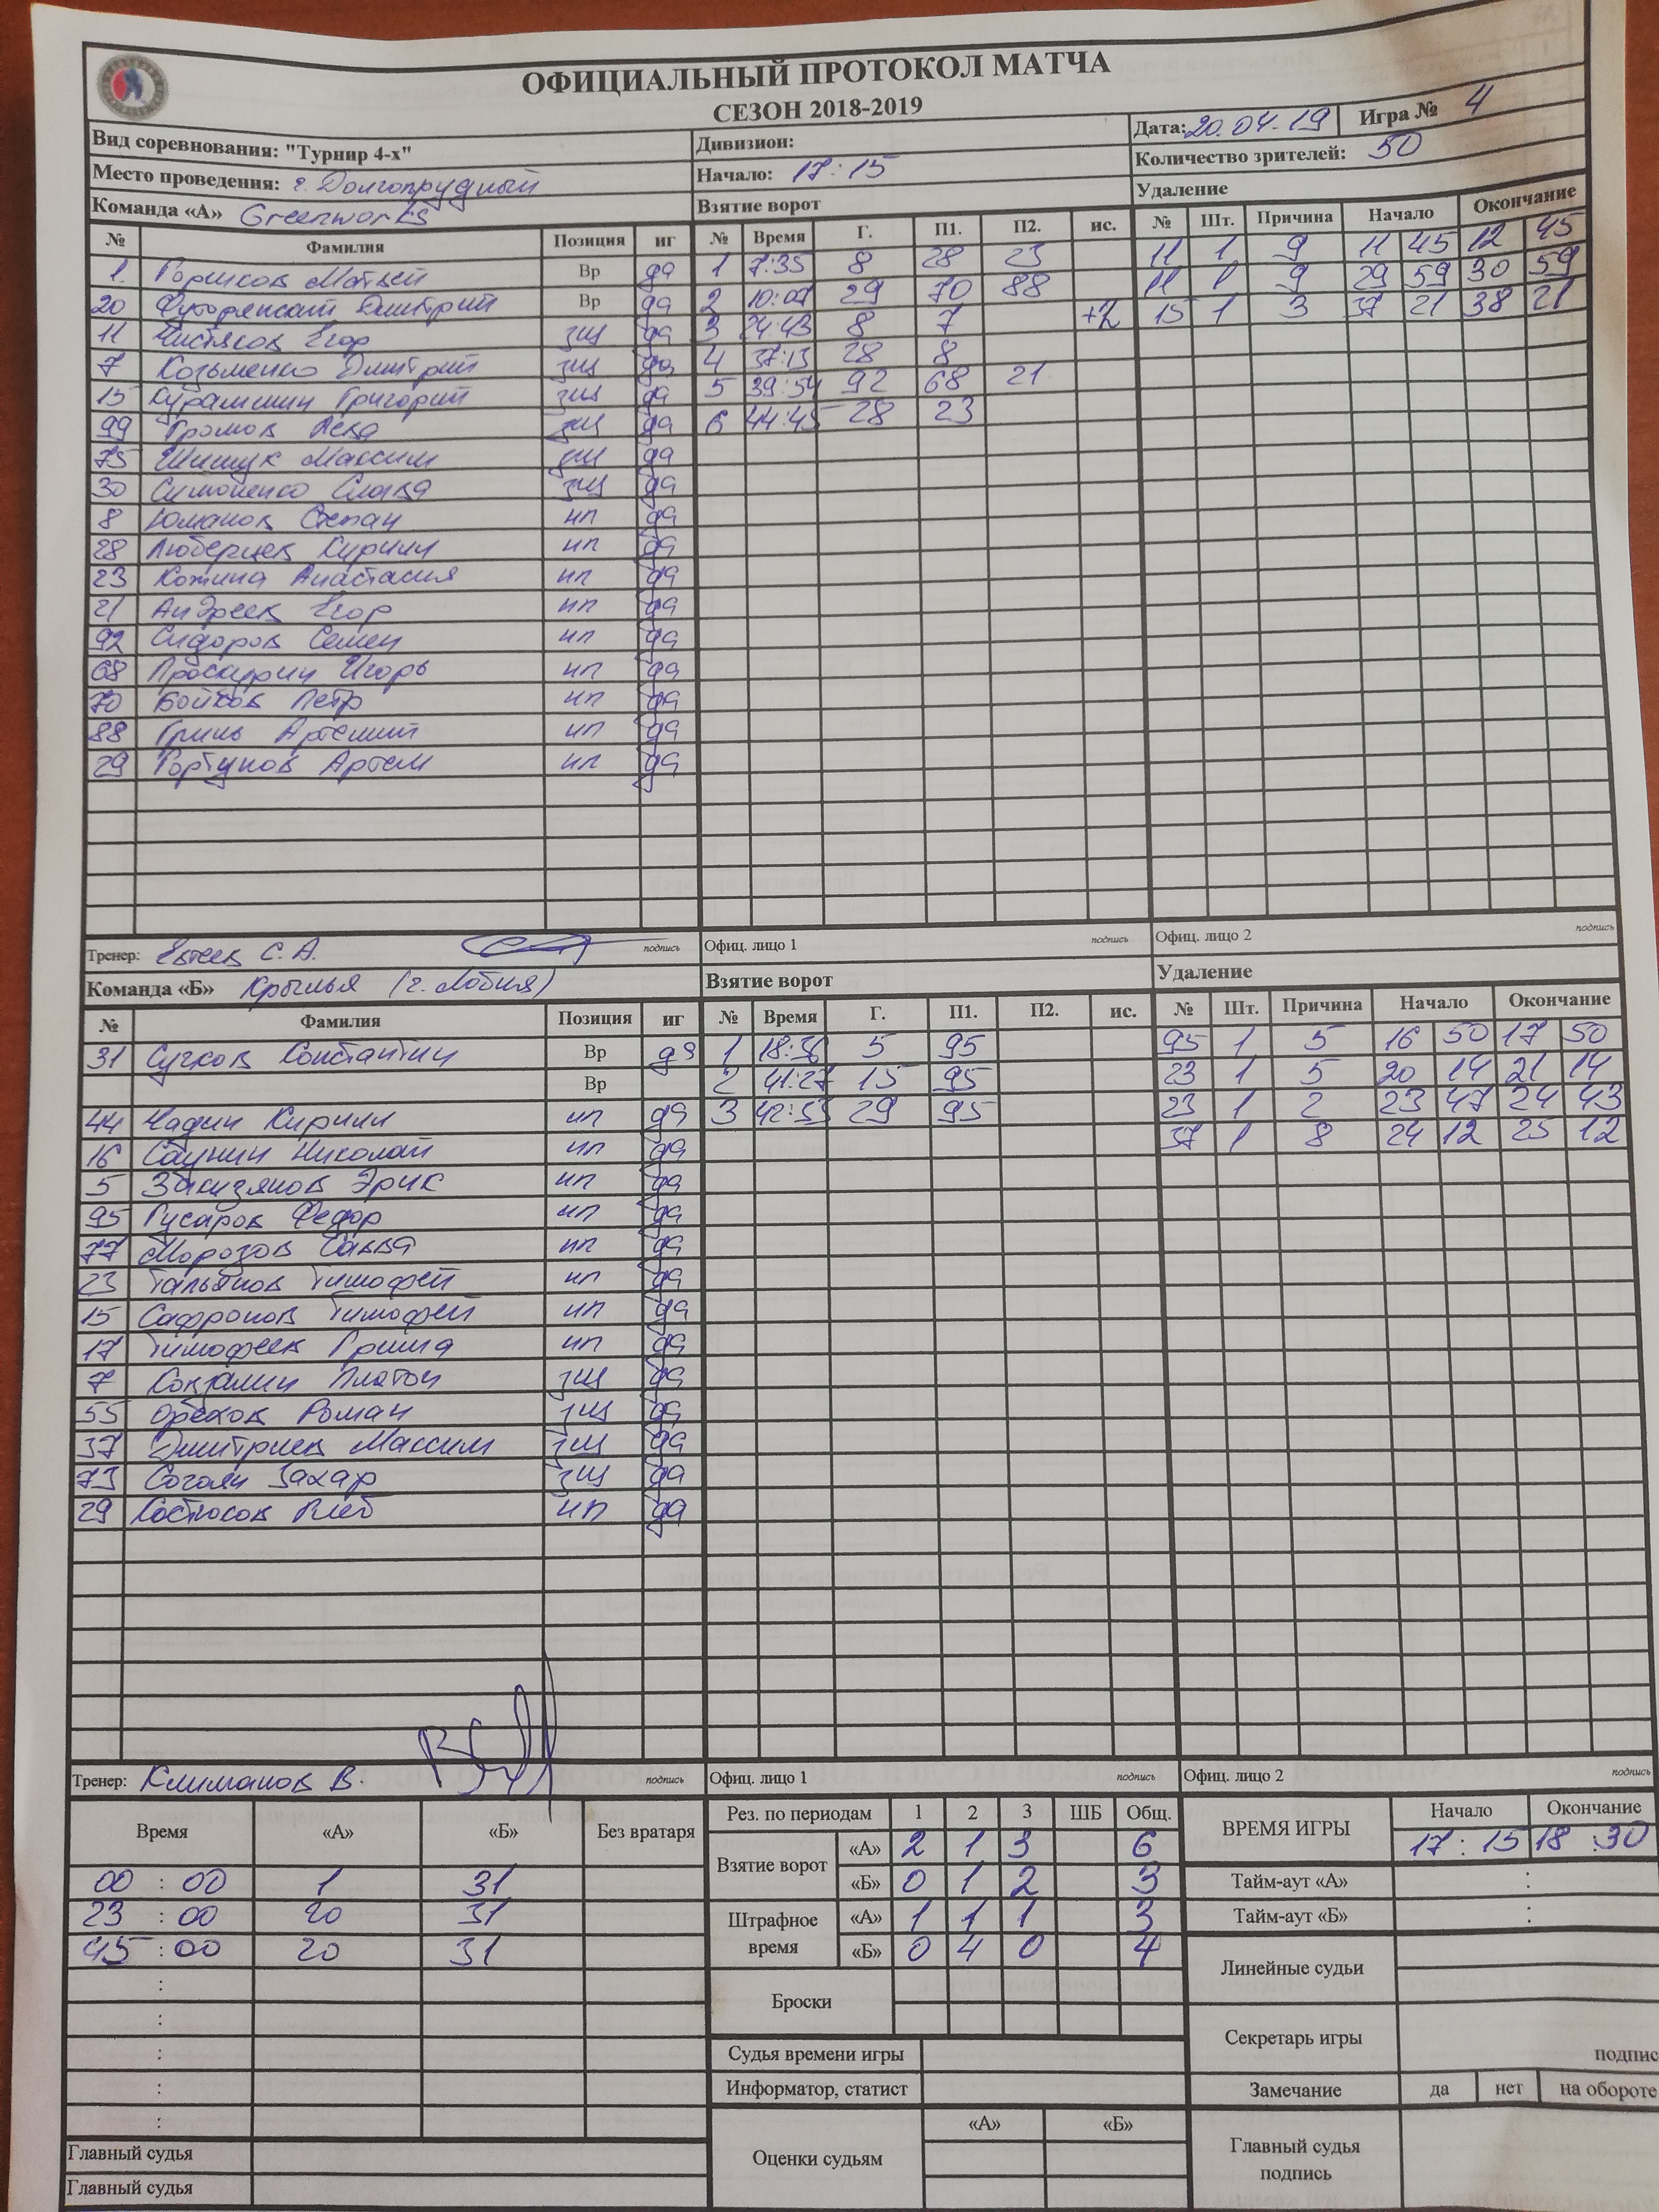 ОФИЦИАЛЬНЫЙ ПРОТОКОЛ МАТЧА
СЕЗОН 2018-2019
Вид соревнования: "Турнир 4-х" Дивизион: Дата: 20.04.19 Игра № 4
Место проведения: г. Долгопрудный Начало: 17:15 Количество зрителей: 50
Команда «А» Greenworks Взятие ворот Удаление
№ Фамилия Позиция иг № Время Г. П1. П2. ис. № Шт. Причина Начало Окончание
1. Горшков Матвей Вр да 1 7:35 8 28 23 11 1 9 11 45 12 45
20 Дмитрий Вр да 2 10:07 29 70 88 11 1 9 29 59 30 59
11 Чистяков Егор зщ да 3 24:43 8 7 +2 15 1 3 37 21 38 21
7 Козьменко Дмитрий зщ да 4 37:13 28 8
15 Курамшин Григорий зщ да 5 39:54 92 68 21
99 Громов Лева зщ да 6 44:45 28 23
75 Шишук Максим зщ да
30 Симоненко Слава зщ да
8 Юманов Степан нп да
28 Люберцев Кирилл нп да
23 Кожина Анастасия нп да
21 Андреев Егор нп да
92 Сидоров Семен нп да
68 Проскурин Игорь нп да
70 Бойков Петр нп да
88 Гринь Артемий нп да
29 Гортунов Артем нп да
Тренер: Евтеев С.А. подпись Офиц. лицо 1 подпись Офиц. лицо 2 подпись
Команда «Б» Крылья (г. Лобня) Взятие ворот Удаление
№ Фамилия Позиция иг № Время Г. П1. П2. ис. № Шт. Причина Начало Окончание
31 Сучков Константин Вр да 1 18:36 5 95 95 1 5 16 50 17 50
Вр 2 41:27 15 95 23 1 5 20 14 21 14
44 Чадин Кирилл нп да 3 42:53 29 95 23 1 2 23 47 24 43
16 Саунин Николай нп да 37 1 8 24 12 25 12
5 Закизянов Эрик нп да
95 Гусаров Федор нп да
77 Морозов Савва нп да
23 Тальянов Тимофей нп да
15 Сафронов Тимофей нп да
17 Тимофеев Гриша нп да
7 Платон зщ да
55 Орехов Роман зщ да
37 Дмитриев Максим зщ да
73 Согоян Захар зщ да
29 Костюсов Глеб нп да
Тренер: Климанов В. подпись Офиц. лицо 1 подпись Офиц. лицо 2 подпись
Время «А» «Б» Без вратаря Рез. по периодам 1 2 3 ШБ Общ. ВРЕМЯ ИГРЫ Начало Окончание
Взятие ворот «А» 2 1 3 6 17:15 18:30
00:00 1 31 «Б» 0 1 2 3 Тайм-аут «А» :
23:00 20 31 Штрафное время «А» 1 1 1 3 Тайм-аут «Б» :
45:00 20 31 «Б» 0 4 0 4 Линейные судьи
: Броски
: Секретарь игры
: Судья времени игры подпис
: Информатор, статист Замечание да нет на обороте
: «А» «Б»
Главный судья Оценки судьям Главный судья подпись
Главный судья